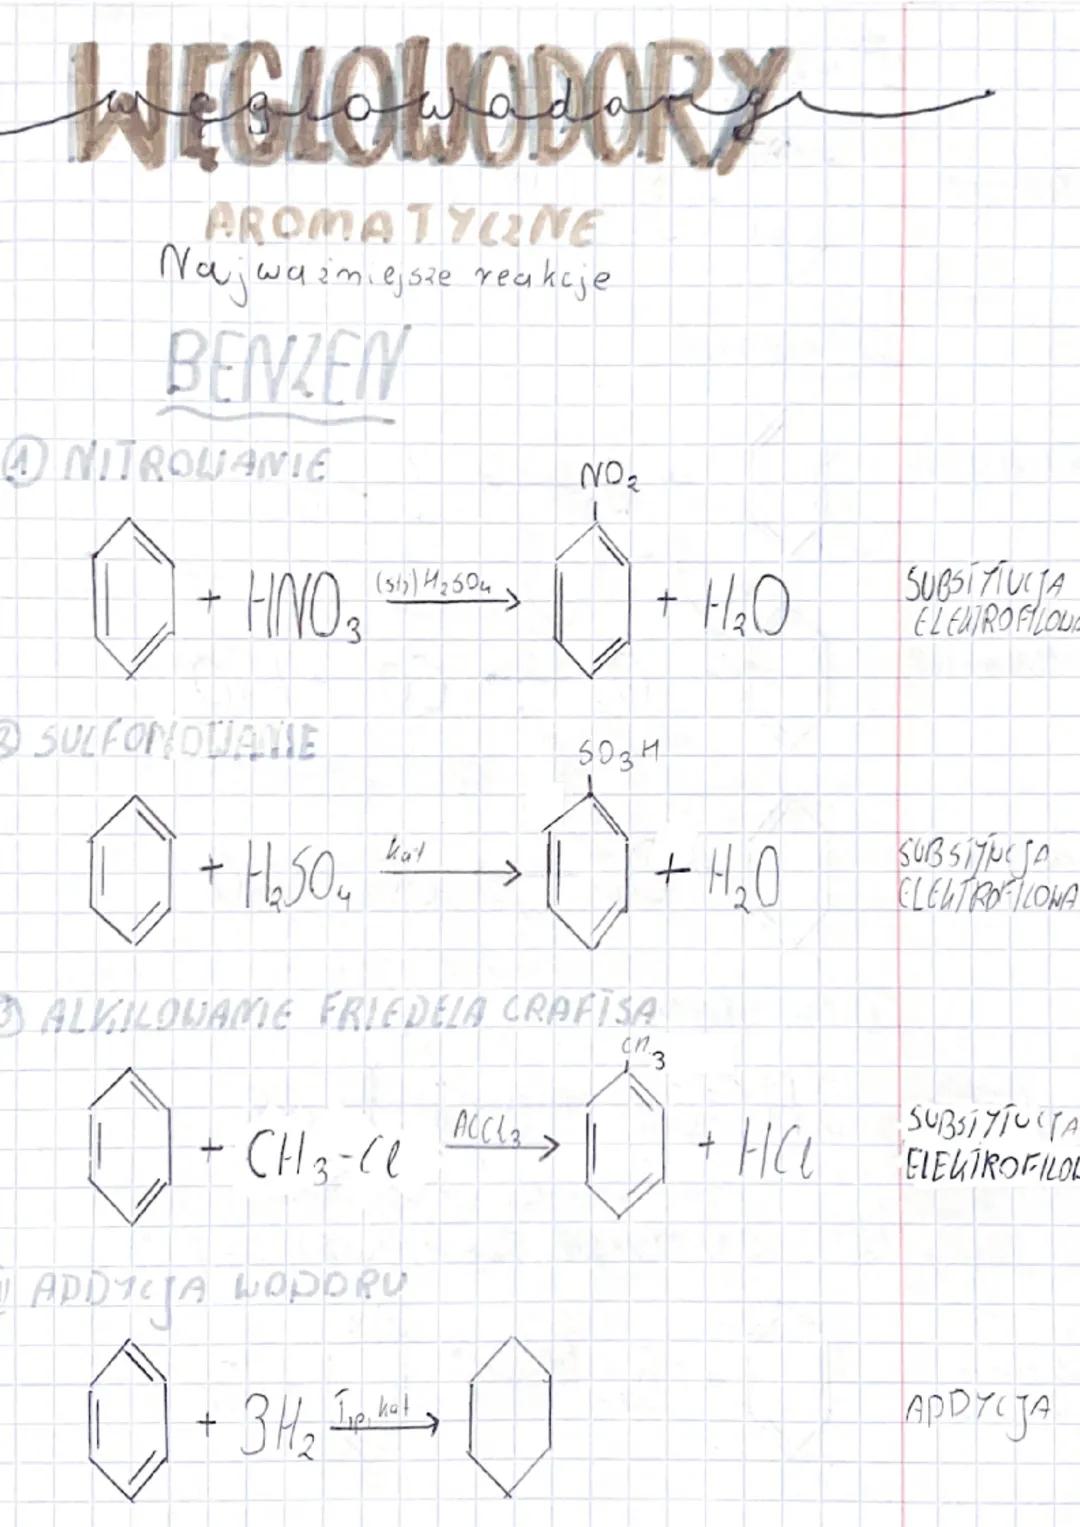 WĘGLOWODORY
węglowodory
AROMATYCZNE
Najważniejsze reakcje
BENZEN
① NITROWANIE
NO₂
+ HNO₃ (stż) H₂SO₄ → + H₂O
SUBSTYTUCJA
ELEKTROFILOWA
② SULFONOWANIE
SO₃H
+ H₂SO₄ kat → + H₂O
SUBSTYTUCJA
ELEKTROFILOWA
③ ALKILOWANIE FRIEDELA CRAFTSA
CH₃
+ CH₃-Cl AlCl₃ → + HCl
SUBSTYTUCJA
ELEKTROFILOW
ADDYCJA WODORU
+ 3H₂ T, p, kat →
ADDYCJA